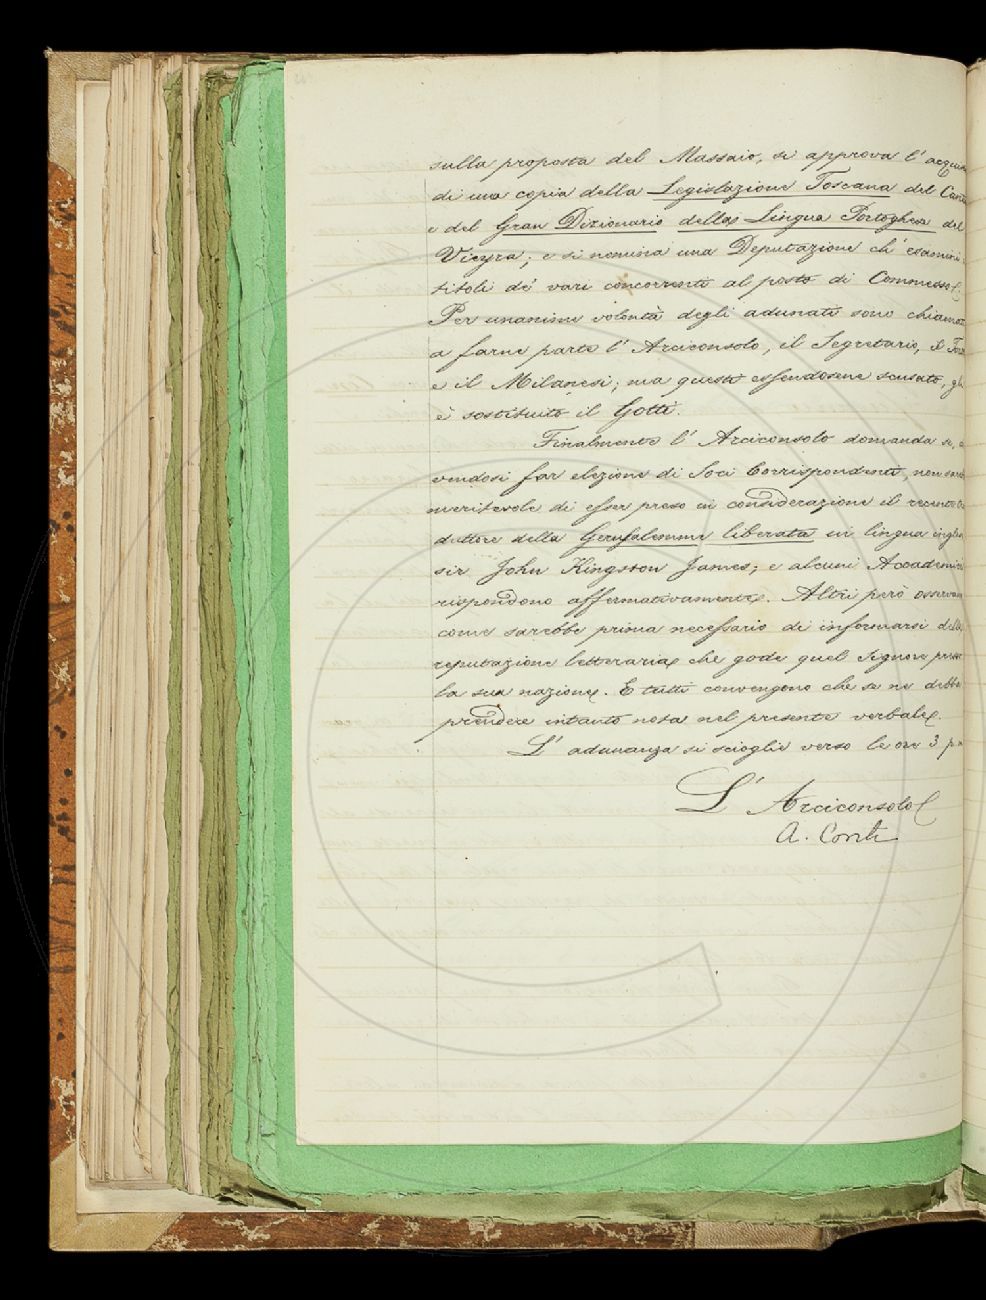 sulla proposta del Massaio, si approva l' acquis
di una copia della Legislazione Toscana del Canti
e del Gran Dizionario della Lingua Portoghese del
Vieyra; e si nomina una Deputazione ch' esamini i
titoli de' vari concorrenti al posto di Commesso.
Per unanime volontà degli adunati sono chiamat
a farne parte l' Arciconsolo, il Segretario, il
e il Milanesi; ma questi essendosene scusato, gli
è sostituito il Gotti.
Finalmente l' Arciconsolo domanda se,
vendosi far elezione di Soci Corrispondenti, non
meritevole di esser preso in considerazione il recente tra
duttore della Gerusalemme liberata in lingua ingles
sir John Kingston James; e alcuni Accademici
rispondono affermativamente. Altri però osservan
come sarebbe prima necessario di informarsi della
reputazione letteraria che gode quel Signore presso
la sua nazione. E tutti convengono che se ne debba
prendere intanto nota nel presente verbale.
L' adunanza si scioglie verso le ore 3 p
L' Arciconsolo
A. Conti